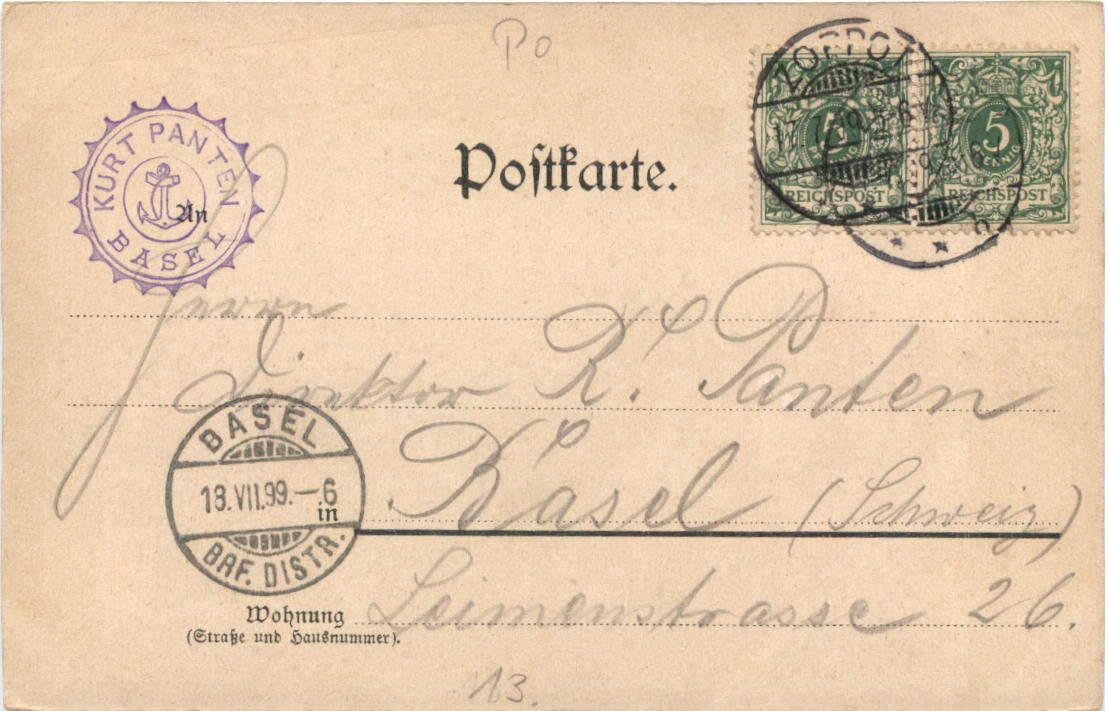 Po
KURT PANTEN
BASEL
Postkarte.
ZOPPOT
5
PFENNIG
REICHSPOST
5
PFENNIG
REICHSPOST
An
Herrn
Direktor K. Panten
BASEL
18.VII.99.—6
BRF. DISTR.
in
Basel (Schweiz)
Wohnung
(Straße und Hausnummer).
Leimenstrasse 26.
13.